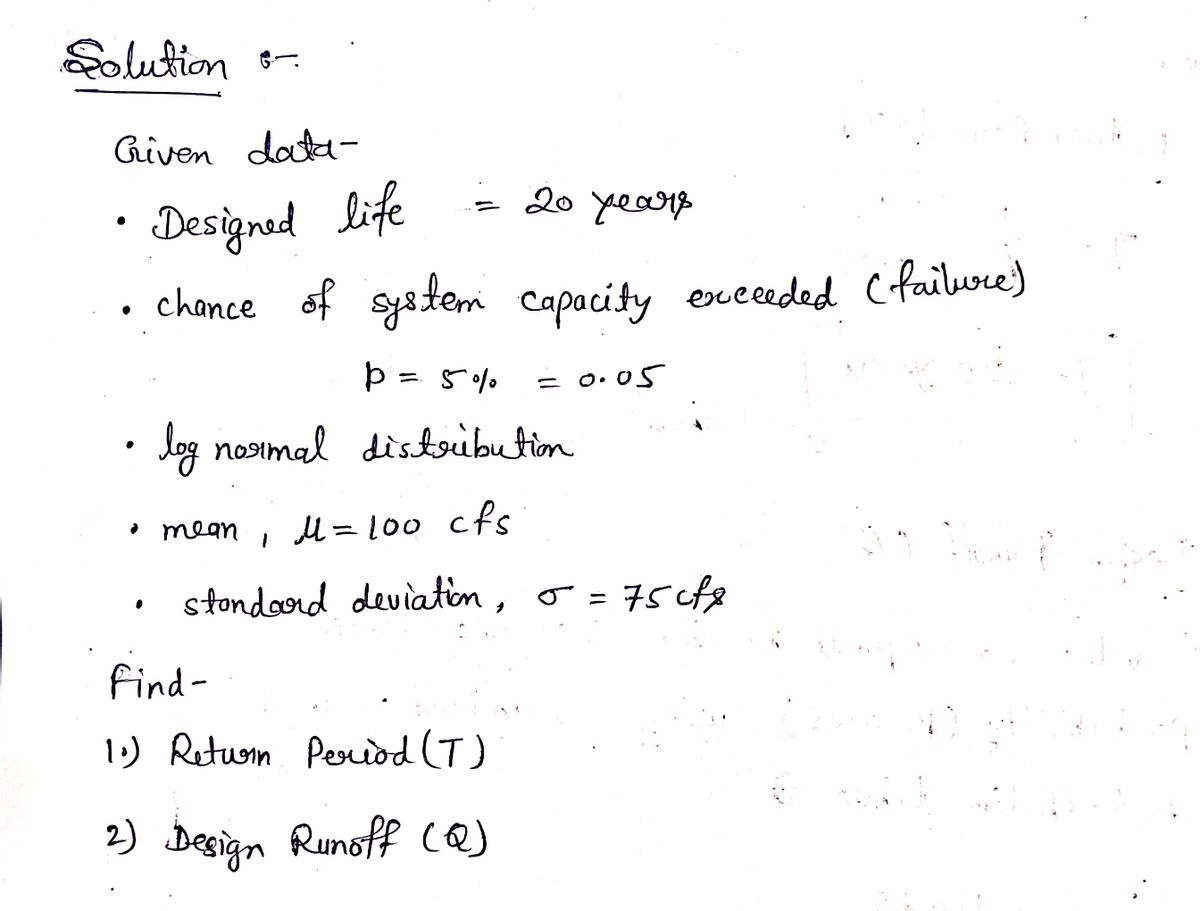 Solution :-
Given data-
• Designed life = 20 years
• chance of system capacity exceeded (failure)
p = 5% = 0.05
• log normal distribution
• mean, μ = 100 cfs
• standard deviation, σ = 75 cfs
Find-
1.) Return Period (T)
2) Design Runoff (Q)